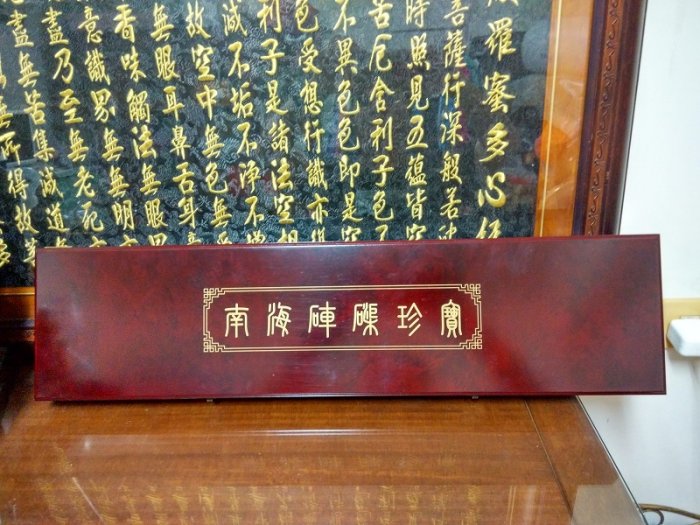 羅蜜多心經
菩薩行深般若波
時照見五蘊皆空
苦厄舍利子色不
不異色色即是空
色受想行識亦復
利子是諸法空相
滅不垢不淨不增
故空中無色無
無眼耳鼻舌身意
香味觸法無眼界
意識界無無明
盡乃至無老死亦
盡無苦集滅道
無所得故菩
多
南海硨磲珍寶